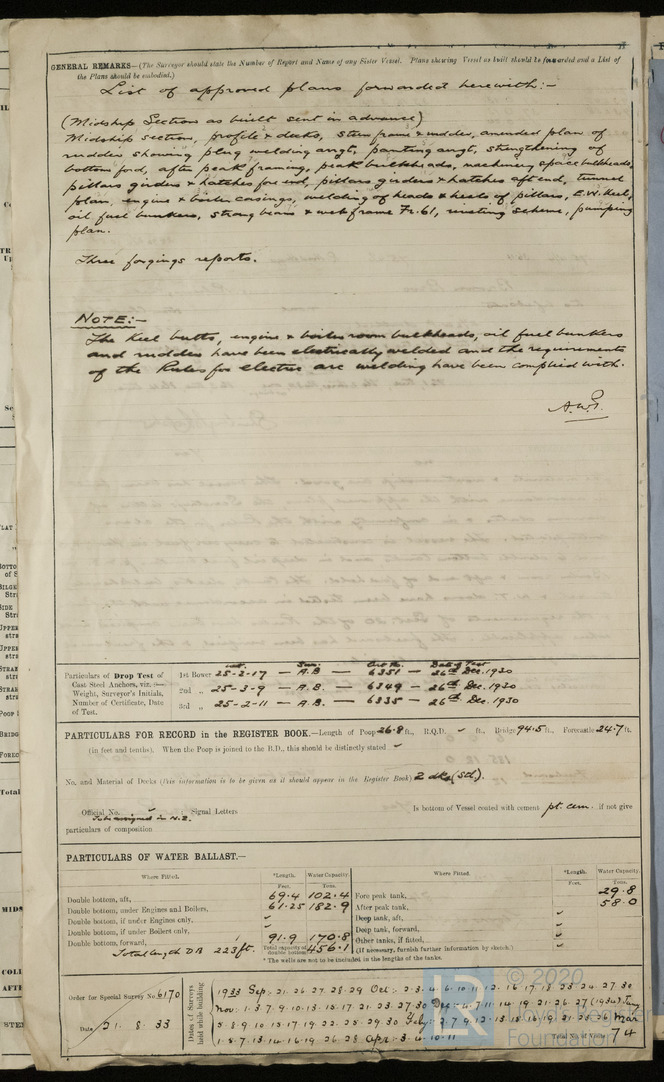 GENERAL REMARKS—(The Surveyor should state the Number of Report and Name of any Sister Vessel. Plans shewing Vessel as built should be forwarded and a List of
the Plans should be embodied.)
List of approved plans forwarded herewith:-
(Midship Section as built sent in advance)
Midship section, profile & decks, stern frame & rudder, amended plan of
rudder showing plug welding arrgt, panting arrgt, strengthening of
bottom ford, after peak framing, peak bulkheads, machinery space bulkheads,
pillars girders & hatches fore end, pillars girders & hatches aft end, tunnel
plan, engine & boiler casings, welding of heads & heels of pillars, E.W. Keel,
oil fuel bunkers, strong beams & web frame Fr. 61, riveting scheme, pumping
plan.
Three forgings reports.
NOTE:-
The Keel butts, engine & boiler room bulkheads, oil fuel bunkers
and rudder have been electrically welded and the requirements
of the Rules for electric arc welding have been complied with.
Particulars of Drop Test of
Cast Steel Anchors, viz. :—
Weight, Surveyor's Initials,
Number of Certificate, Date
of Test.
Date of Test
1st Bower 25-2-17 — A.B. — 6351 — 26th Dec. 1930
2nd „ 25-3-9 — A.B. — 6349 — 26th Dec. 1930
3rd „ 25-2-11 — A.B. — 6335 — 26th Dec. 1930
PARTICULARS FOR RECORD in the REGISTER BOOK.—Length of Poop 26.8 ft., R.Q.D. - ft., Bridge 94.5 ft., Forecastle 24.7 ft.
(in feet and tenths). When the Poop is joined to the B.D., this should be distinctly stated
No. and Material of Decks (this information is to be given as it should appear in the Register Book) 2 dks (Stl).
Official No. Signal Letters Is bottom of Vessel coated with cement pt. cem. if not give
To be assigned in N.Z.
particulars of composition
PARTICULARS OF WATER BALLAST.—
Where Fitted. *Length. Water Capacity. Where Fitted. *Length. Water Capacity.
Feet. Tons. Feet. Tons.
Double bottom, aft, 69.4 102.4 Fore peak tank, 29.8
Double bottom, under Engines and Boilers, 61.25 182.9 After peak tank, 58.0
Double bottom, if under Engines only, Deep tank, aft,
Double bottom, if under Boilers only, Deep tank, forward,
Double bottom, forward, 91.9 170.8 Other tanks, if fitted,
Total length DB 223 ft. Total capacity of double bottom 456.1 (If necessary, furnish further information by sketch.)
* The wells are not to be included in the lengths of the tanks.
Order for Special Survey No. 6170
Date 21.8.33
Dates of Surveys held while building
1933 Sep: 21. 26. 27. 28. 29 Oct: 3. 4. 6. 10. 11. 12. 16. 17. 18. 23. 24. 27. 30
Nov: 1. 3. 7. 9. 10. 13. 15. 17. 21. 23. 27. 30 Dec: 4. 7. 11. 14. 19. 21. 26. 27 (1934) Jany
5. 8. 9. 10. 15. 17. 19. 22. 25. 29. 30 Feby: 2. 7. 9. 12. 13. 15. 16. 19. 21. 25. 26 Mar
1. 5. 7. 13. 14. 16. 19. 26. 28 Apr: 3. 4. 10. 11
Total No. of Visits 74
© 2020
Lloyd's Register
Foundation